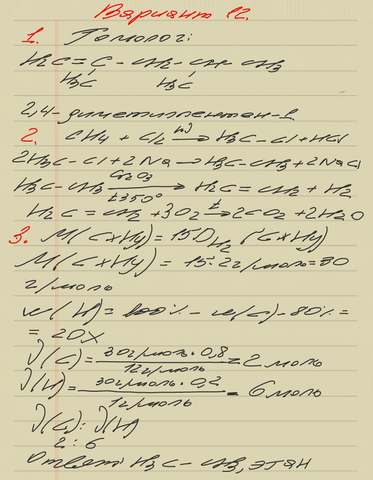 Вариант 12.
1. Гомологи:
H2C = C - CH2 - CH - CH3
H3C H3C
2,4-диметилпентен-1
2. CH4 + Cl2 hν→ H3C-Cl + HCl
2H3C-Cl + 2Na → H3C-CH3 + 2NaCl
H3C-CH3 Cr2O3→ t350° H2C=CH2 + H2
H2C=CH2 + 3O2 t→ 2CO2 + 2H2O
3. M(CxHy) = 15·DH2 (CxHy)
M(CxHy) = 15·2г/моль = 30
г/моль
w(H) = 100% - w(C) - 80% =
= 20%
ν(C) = 30г/моль · 0,8 / 12г/моль = 2 моль
ν(H) = 30г/моль · 0,2 / 1г/моль = 6 моль
ν(C) : ν(H)
2 : 6
Ответ: H3C - CH3, этан